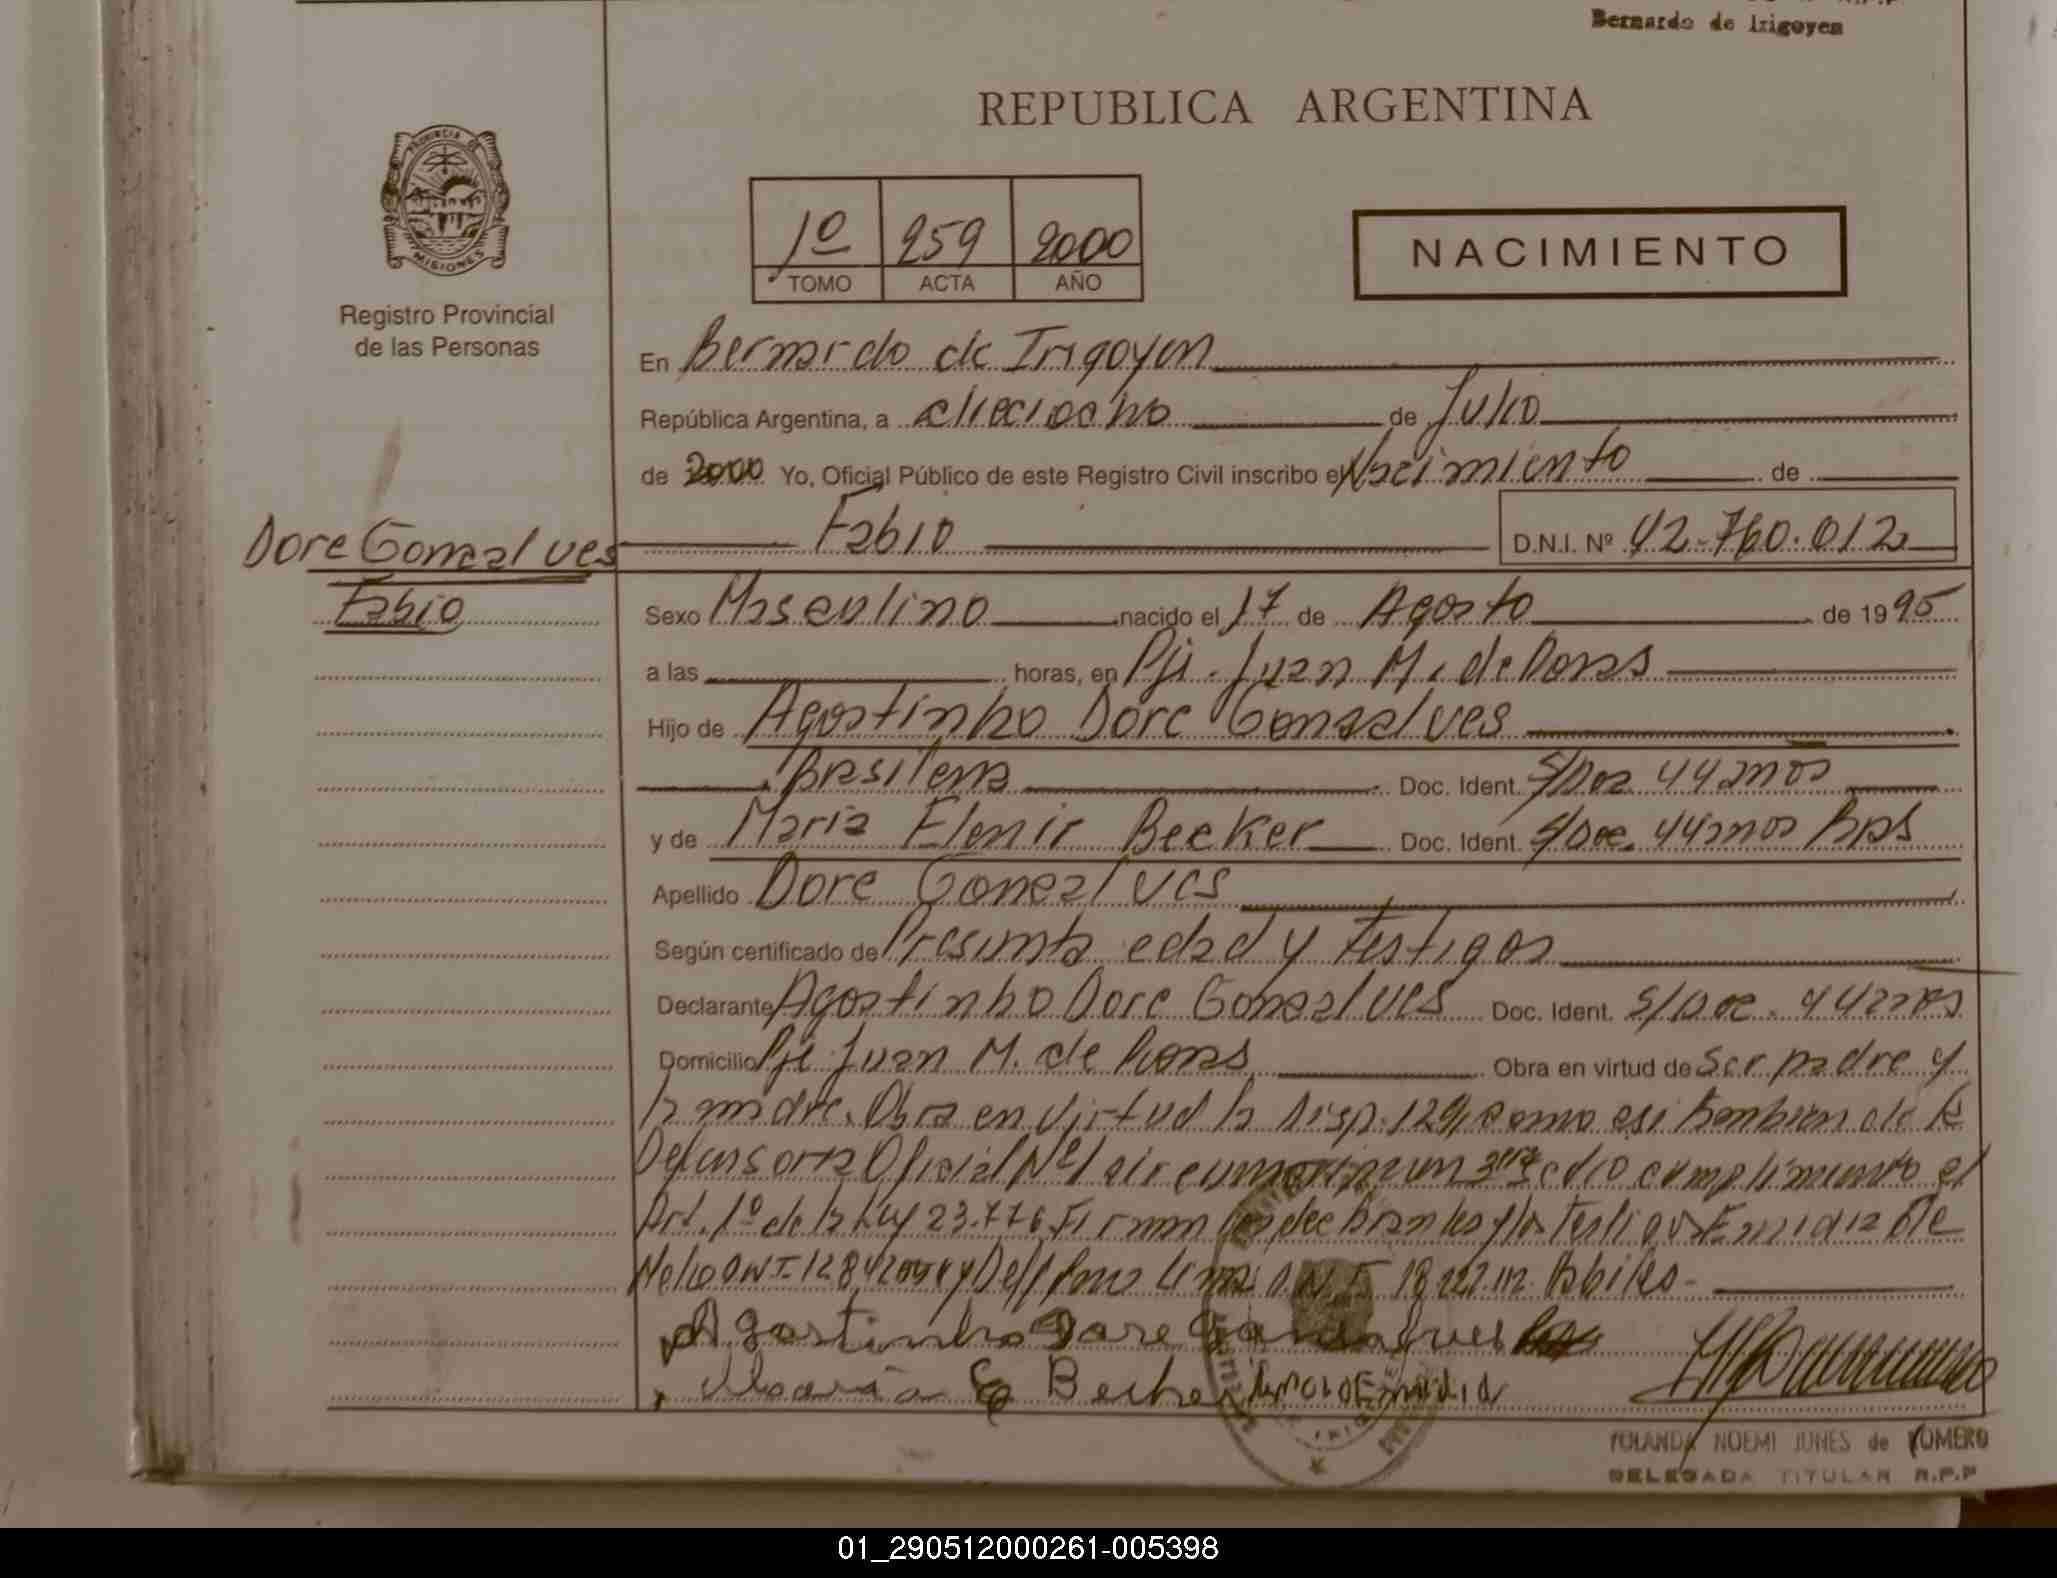 Bernardo de Irigoyen
REPUBLICA ARGENTINA
PROVINCIA DE
MISIONES
1º 259 2000
TOMO ACTA AÑO
NACIMIENTO
Registro Provincial
de las Personas
En Bernardo de Irigoyen
República Argentina, a dieciocho de Julio
de 2000 Yo, Oficial Público de este Registro Civil inscribo el Nacimiento de
Dore Gonzalves
Fabio
Fabio D.N.I. Nº 42.760.012
Sexo Masculino nacido el 17 de Agosto de 1995
a las horas, en Pje. Juan M. de Rosas
Hijo de Agostinho Dore Gonsalves
Brasilena Doc. Ident. S/Doc. 44 anos
y de Maria Elenir Becker Doc. Ident. S/Doc. 44 anos Bras
Apellido Dore Gonzalves
Según certificado de Presunta edad y testigos
Declarante Agostinho Dore Gonzalves Doc. Ident. S/Doc. 44 anos
Domicilio Pje Juan M. de Rosas Obra en virtud de ser padre y
la madre. Obra en virtud la Disp. 129, como asi tambien de la
Defensoria Oficial Nº1 dio cumplimiento el
Art. 1º de la Ley 23.776 Firman los declarantes y los Testigos Emidia De
Melo D.N.I. y Lima D.N.I. 18.227.112
Agostinho Dore Gonsalves
Maria E Becker Emidia
YOLANDA NOEMI JUNES de ROMERO
DELEGADA TITULAR R.P.P
01_290512000261-005398